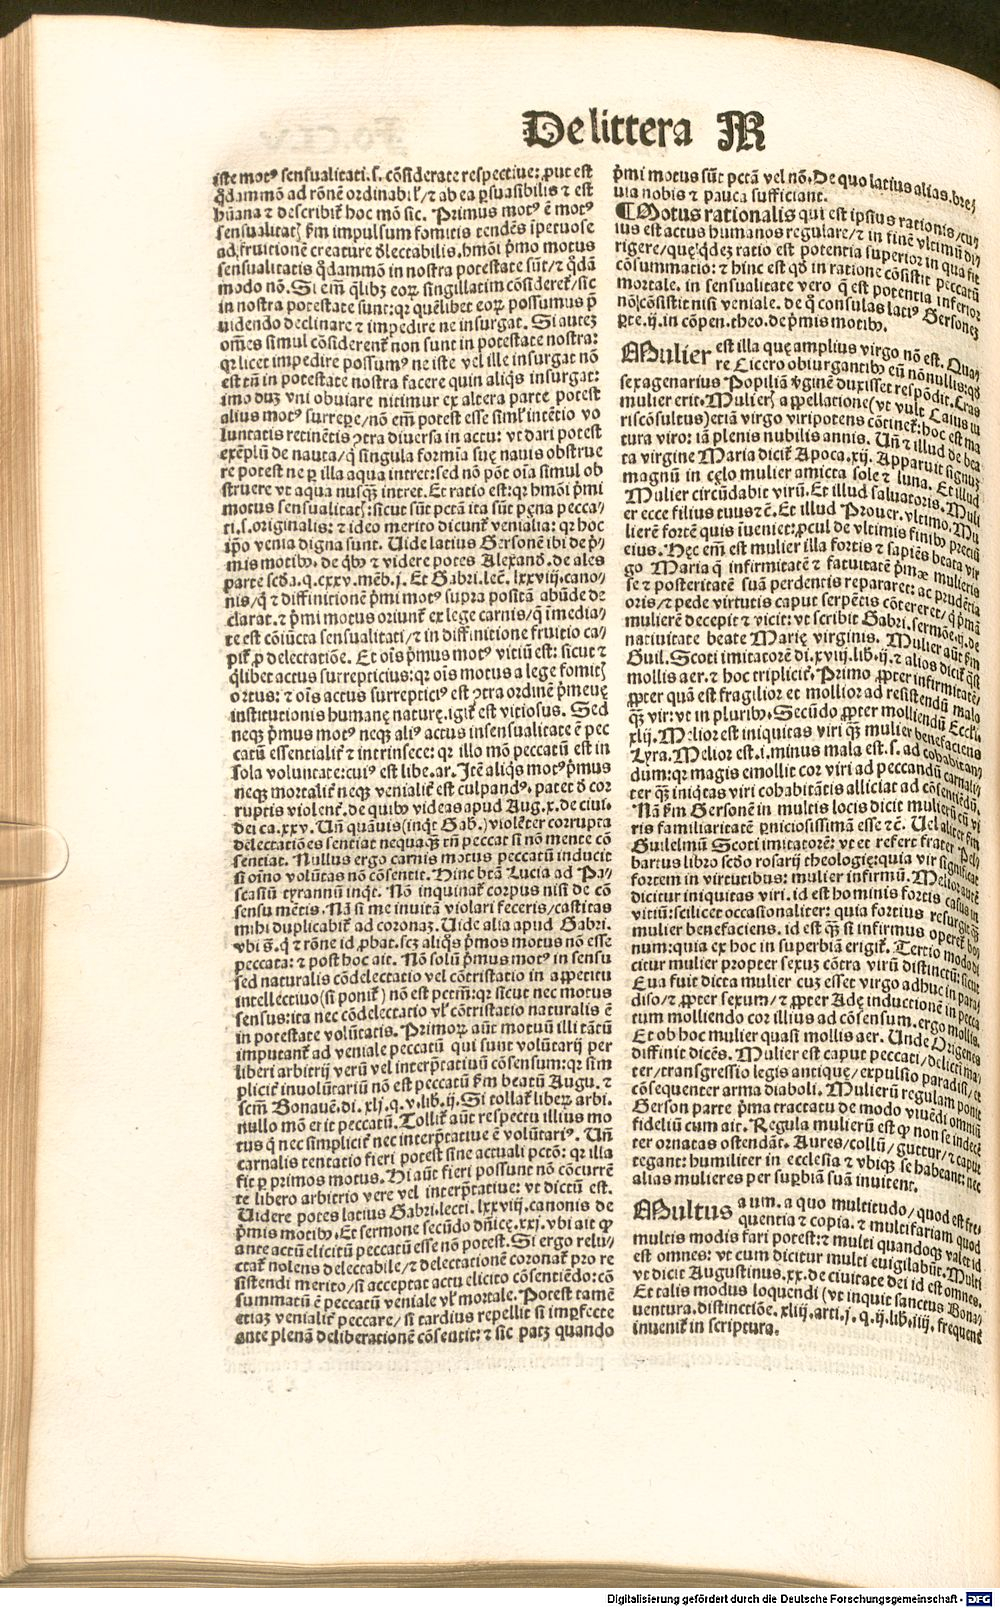 De littera M
iste motꝰ sensualitati.s. cōsiderate respectiue: ꝓut est
q̄dammō ad rōnē ordinabil̓/ ⁊ ab ea ꝑsuasibilis ⁊ est
hūana ⁊ describit̄ hoc mō sic. Primus motꝰ ē motꝰ
sensualitatꝭ ẜm impulsum fomitis tendēs īpetuose
ad fruitionē creature dl̓ectabilis. hmōi p̄mo motus
sensualitatis q̄dammō in nostra potestate sūt/ ⁊ q̄dā
modo nō. Si em̄ q̄libꝫ eoꝝ singillatim cōsideret̄/ sic
in nostra potestate sunt: qꝛ quēlibet eoꝝ possumus p̄
uidendo declinare ⁊ impedire ne insurgat. Si autez
om̄es simul cōsiderent̄ non sunt in potestate nostra:
qꝛ licet impedire possumꝰ ne iste vel ille insurgat nō
est tn̄ in potestate nostra facere quin aliq̄s insurgat:
imo duꝫ vni obuiare nitimur ex altera parte potest
alius motꝰ surrepe̱/ nō em̄ potest esse siml̓ intētio vo
luntatis retinētis ꝯtra diuersa in actu: vt dari potest
exēplū de nauta/ q̄ singula formīa suę nauis obstrue
re potest ne ꝑ illa aqua intret: sed nō pōt oīa simul ob
struere vt aqua nusq̄ꝫ intret. Et ratio est: qꝛ hmōi p̄mi
motus sensualitatꝭ: sicut sūt pctā ita sūt pęna pecca/
ti.s. originalis: ⁊ ideo merito dicunt̄ venialia: qꝛ hoc
ip̄o venia digna sunt. Uide latius Gersonē ibi de p̄/
mis motibꝰ. de q̄bꝰ ⁊ videre potes Alexand. de ales
parte scďa.q.cxxv.mēb.j. Et Gabri. lec̄. lxxviij. cano/
nis/ q̄ ⁊ diffinitionē p̄mi motꝰ supra positā abūde de
clarat. ⁊ p̄mi motus oriunt̄ ex lege carnis/ q̄ īmedia/
te est cōiūcta sensualitati/ ⁊ in diffinitione fruitio ca/
pit̄ ꝓ delectatiōe. Et oīs p̄mus motꝰ vitiū est: sicut ⁊
q̄libet actus surrepticius: qꝛ oīs motus a lege fomitꝭ
ortus: ⁊ oīs actus surrepticiꝰ est ꝯtra ordinē p̄meuę
institutionis humanę naturę. igit̄ est vitiosus. Sed
neqꝫ p̄mus motꝰ neqꝫ aliꝰ actus insensualitate ē pec
catū essentialit̄ ⁊ intrinsece: qꝛ illo mō peccatū est in
sola voluntate: cuiꝰ est libe. ar. Itē aliq̄s motꝰ p̄mus
neqꝫ mortalit̄ neqꝫ venialit̄ est culpandꝰ. patet ď cor
ruptis violent̄. de quibꝰ videas apud Aug.x. de ciui.
dei ca.xxv. Un̄ quāuis (inq̄t Gab.) violēter corrupta
delectatiōes sentiat nequaq̄ꝫ tn̄ peccat si nō mente cō
sentiat. Nullus ergo carnis motus peccatū inducit
si oīno volūtas nō cōsentit. Hinc btā Lucia ad Pa/
scasiū tyrannū inq̄t. Nō inquinat̄ corpus nisi de cō
sensu mētis. Nā si me inuitā violari feceris/ castitas
mihi duplicabit̄ ad coronaꝫ. Uide alia apud Gabri.
vbi s̄. q̄ ⁊ rōne id ꝓbat. scꝫ aliq̄s p̄mos motus nō esse
peccata: ⁊ post hoc ait. Nō solū p̄mus motꝰ in sensu
sed naturalis cōdelectatio vel cōtristatio in appetitu
intellectiuo (si ponit̄) nō est pctm̄: qꝛ sicut nec motus
sensus: ita nec cōdelectatio vl̓ cōtristatio naturalis ē
in potestate volūtatis. Primoꝝ aūt motuū illi tātū
imputant̄ ad veniale peccatū qui sunt volūtarij per
liberi arbitrij verū vel interp̄tatiuū cōsensum: qꝛ sim
plicit̄ inuolūtariū nō est peccatū ẜm beatū Augu. ⁊
scm̄ Bonauē. di. xlj. q. v. lib. ij. Si tollat̄ liberꝝ arbi.
nullo mō erit peccatū. Tollit̄ aūt respectu illius mo
tus q̄ nec simplicit̄ nec interp̄tatiue ē volūtariꝰ. Un̄
carnalis tentatio fieri potest sine actuali pctō: qꝛ illa
fit ꝑ primos motus. Hi aūt fieri possunt nō cōcurrē
te libero arbitrio vere vel interp̄tatiue: vt dictū est.
Uidere potes latius Gabri. lecti. lxxviij. canonis de
p̄mis motibꝰ. Et sermone secūdo dn̄icę. xxj. vbi ait ꝙ
ante actū elicitū peccatū esse nō potest. Si ergo relu/
ctat̄ nolens delectabile/ ⁊ delectationē coronat̄ pro re
sistendi merito/ si acceptat actu elicito cōsentiēdo: cō
summatū ē peccatū veniale vl̓ mortale. Potest tamē
etiaꝫ venialit̄ peccare/ si tardius repellit si imꝑfecte
ante plenā deliberationē cōsentit: ⁊ sic patꝫ quando
p̄mi motus sūt pctā vel nō. De quo latius alias. bre/
uia nobis ⁊ pauca sufficiant.
¶Motus rationalis qui est ipsius rationis/ cu/
ius est actus humanos regulare/ ⁊ in finē vltimū di/
rigere/ que q̄deꝫ ratio est potentia superior in qua fit
cōsummatio: ⁊ hinc est qď in ratione cōsistit peccatū
mortale. in sensualitate vero q̄ est potentia inferior
nō cōsistit nisi veniale. de q̄ consulas latiꝰ Gersoneꝫ
ꝑte.ij. in cōpen. theo. de p̄mis motibꝰ.
Mulier est illa quę amplius virgo nō est. Quā/
re Cicero obiurgantibꝰ eū nōnullis: qď
sexagenarius Popiliā v̓ginē duxisset respōdit. Cras
mulier erit. Mulierꝭ appellatione (vt vult Caius iu
riscōsultus) etiā virgo viripotens cōtinet̄: hoc est ma
tura viro: iā plenis nubilis annis. Un̄ ⁊ illud de bea
ta virgine Maria dicit̄ Apoca. xij. Apparuit signuꝫ
magnū in cęlo mulier amicta sole ⁊ luna. Et illud
Mulier circūdabit virū. Et illud saluatoris. Muli
er ecce filius tuus ⁊ē. Et illud Prouer. vltimo. Mu
lierē fortē quis īueniet: ꝓcul de vltimis finibꝰ preciū
eius. Hęc em̄ est mulier illa fortis ⁊ sapiēs beata vir
go Maria q̄ infirmitatē ⁊ fatuitatē p̄mæ mulieris
se ⁊ posteritatē suā perdentis repararet: ac prudētia
oris/ ⁊ pede virtutis caput serpētis cōtereret/ q̄ p̄mā
mulierē decepit ⁊ vicit: vt scribit Gabri. sermōe. ij. de
natiuitate beate Marię virginis. Mulier aūt ẜm
Guil. Scoti imitatorē di. xviij. lib. ij. ⁊ alios dicit̄ q̄si
mollis aer. ⁊ hoc triplicit̄. Primo ꝓpter infirmitatē/
ꝓpter quā est fragilior et mollior ad resistendū malo
q̄ꝫ vir: vt in pluribꝰ. Secūdo ꝓpter molliendū Eccli.
xlij. Melior est iniquitas viri q̄ꝫ mulier benefaciens
Lyra. Melior est. i. minus mala est. s. ad cohabitan/
dum: qꝛ magis emollit cor viri ad peccandū carnali/
ter q̄ꝫ iniqtas viri cohabitātis alliciat ad cōsentiēdū.
Nā ẜm Gersonē in multis locis dicit mulierū cū vi
ris familiaritatē ꝑniciosissimā esse ⁊ē. Uel aliter ẜm
Guilelmū Scoti imitatorē: vt et refert frater Pel/
bartus libro scďo rosarij theologię: quia vir significat
fortem in virtutibus: mulier infirmū. Melior autē
dicitur iniquitas viri. id est hominis fortis casus in
vitiū: scilicet occasionaliter: quia fortius resurgit q̄ꝫ
mulier benefaciens. id est q̄ꝫ si infirmus operet̄ bo/
num: quia ex hoc in superbiā erigit̄. Tertio modo di
citur mulier propter sexuꝫ cōtra virū distinctū: sicut
Eua fuit dicta mulier cuꝫ esset virgo adhuc in para/
diso/ ⁊ ꝓpter sexum/ ⁊ ꝓpter Adę inductionē in pecca
tum molliendo cor illius ad cōsensum. ergo mollis.
Et ob hoc mulier quasi mollis aer. Unde Origenes
diffinit dicēs. Mulier est caput peccati/ delicti ma/
ter/ transgressio legis antiquę/ expulsio paradisi/ et
cōsequenter arma diaboli. Mulierū regulam ponit
Gerson parte p̄ma tractatu de modo viuēdi omniū
fideliū cum ait. Regula mulierū est ꝙ non se indecē
ter ornatas ostendāt. Aures/ collū/ guttur/ ⁊ caput
tegant: humiliter in ecclesia ⁊ vbiqꝫ se habeant: nec
alias mulieres per suꝑbiā suā inuitent.
Multus a um. a quo multitudo/ quod est fre/
quentia ⁊ copia. ⁊ multifariam quod
multis modis fari potest: ⁊ multi quandoqꝫ valet id
est omnes: vt cum dicitur multi euigilabūt. Multi
vt dicit Augustinus. xx. de ciuitate dei id est omnes.
Et talis modus loquendi (vt inquit sanctus Bona/
uentura. distinctiōe. xliij. arti. j. q. ij. lib. iiij. frequent̄
inuenit̄ in scriptura.
Digitalisierung gefördert durch die Deutsche Forschungsgemeinschaft - DFG